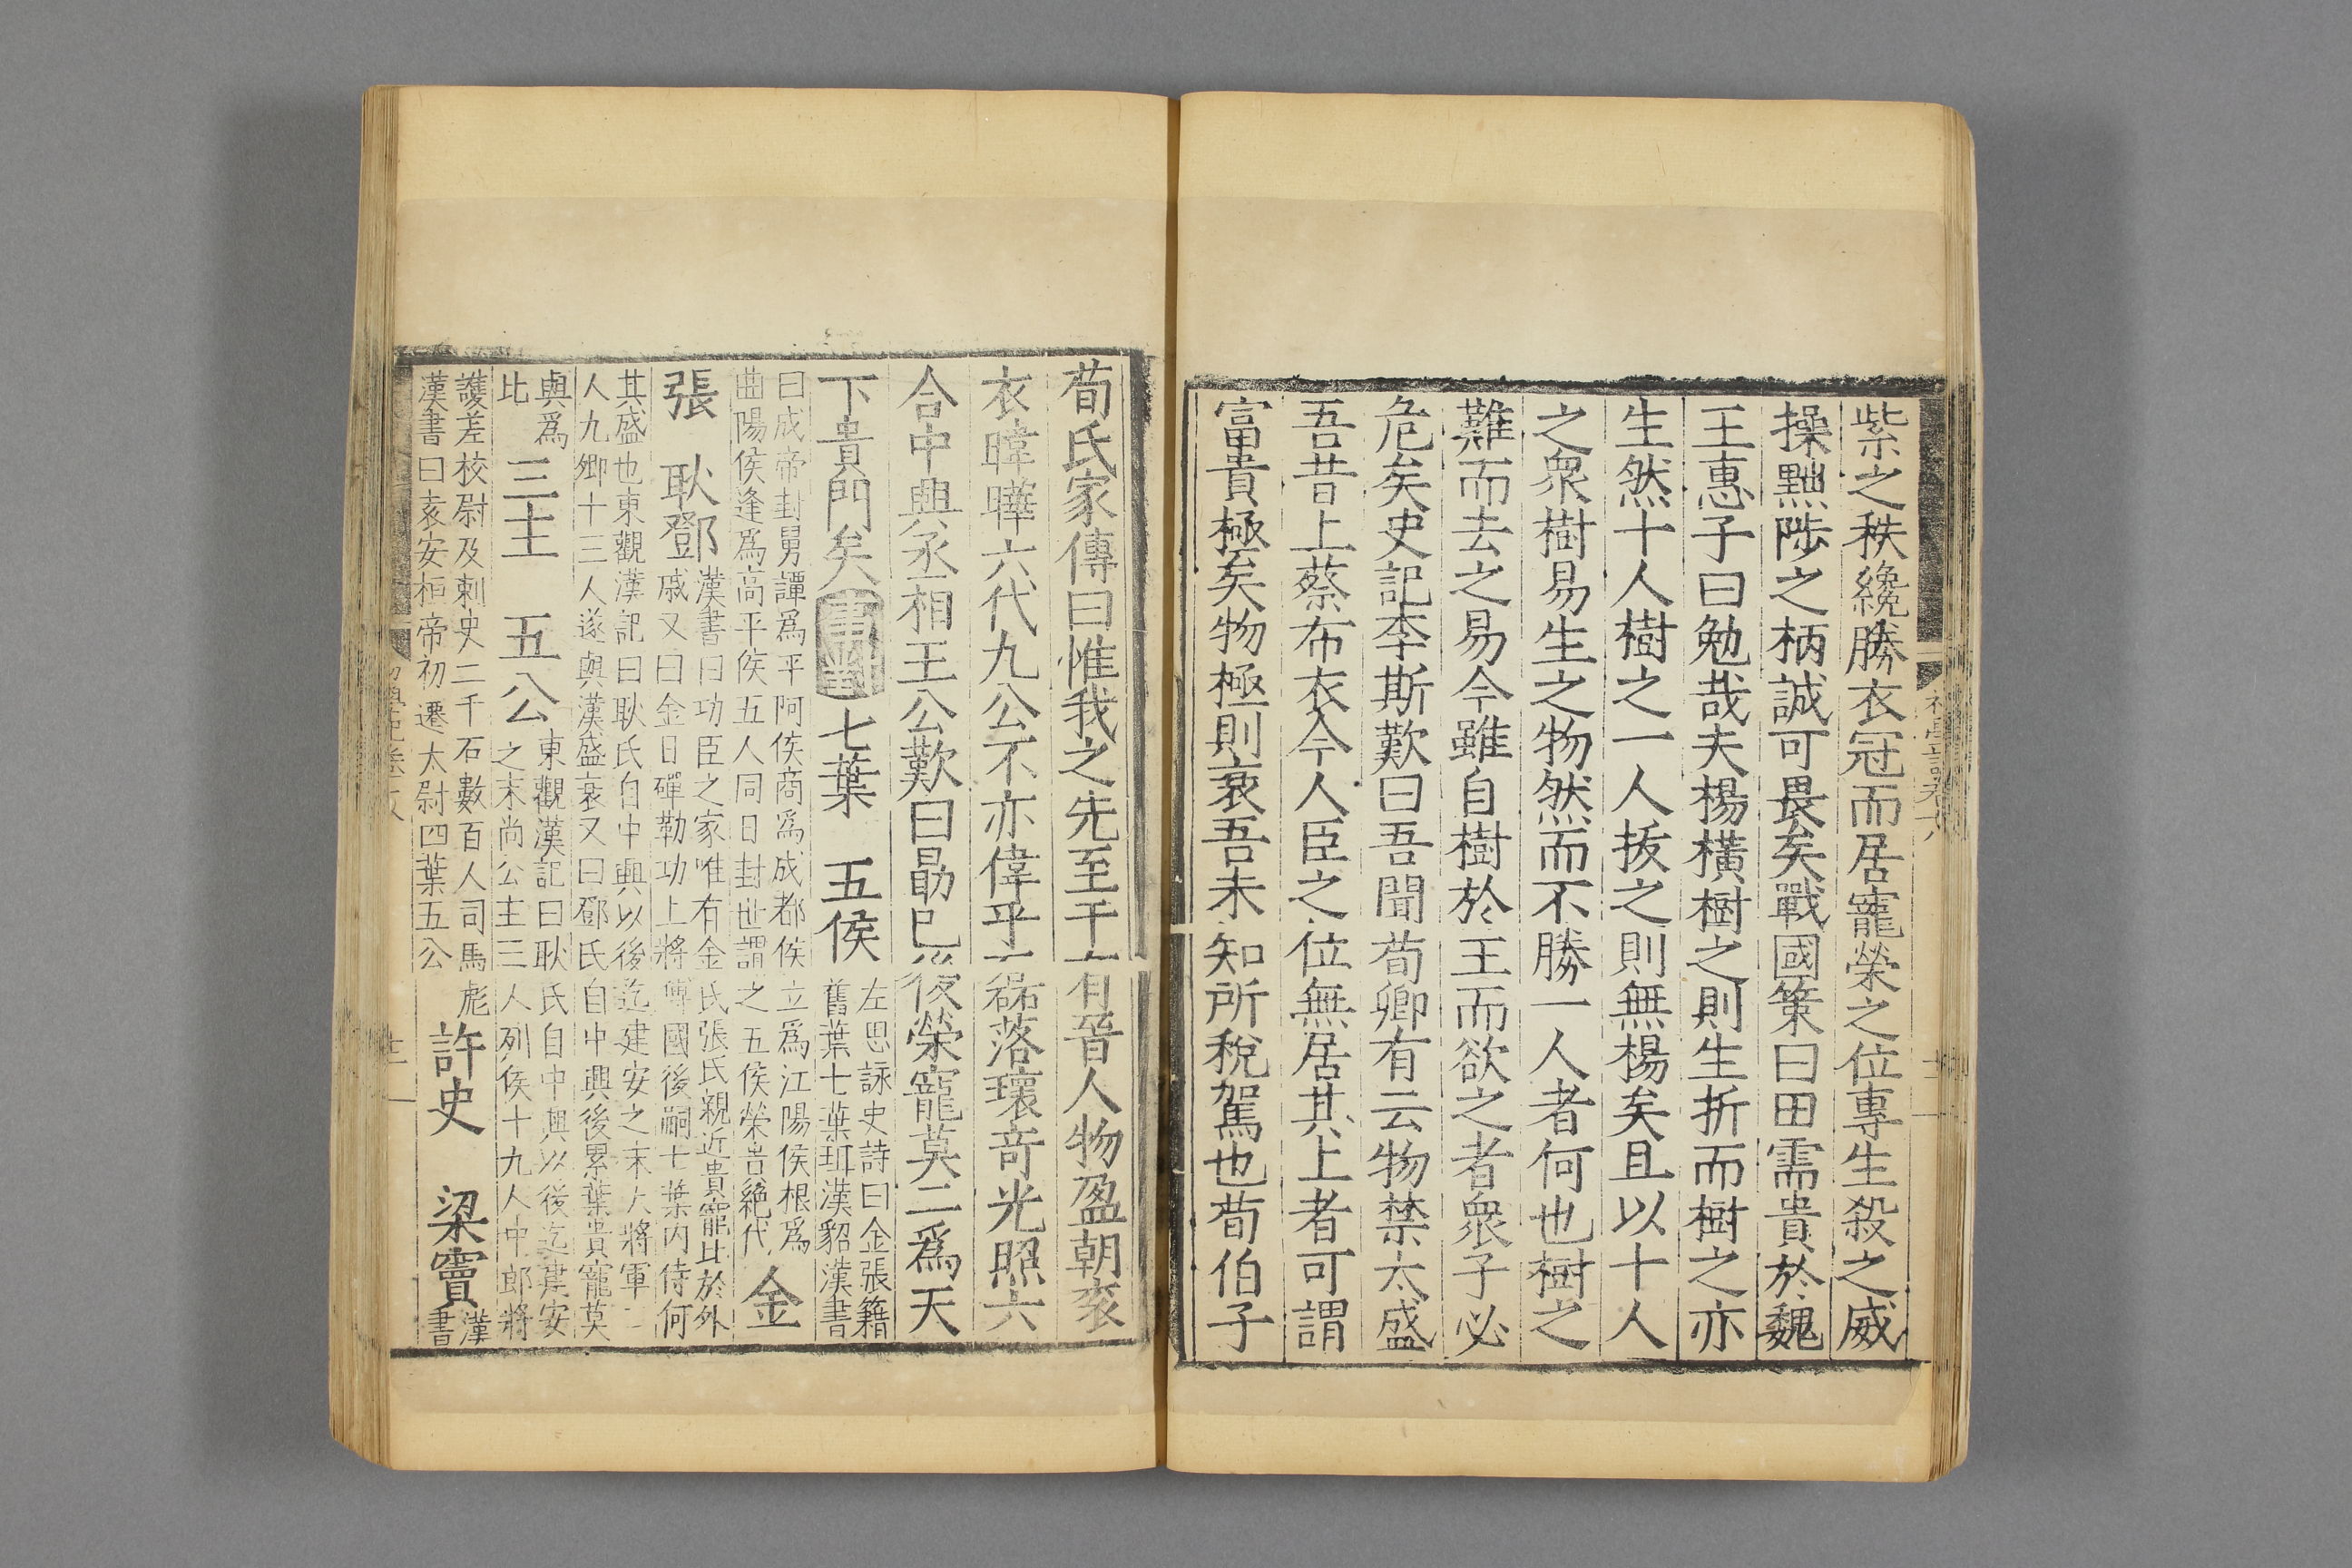 紫之秩纔勝衣冠而居寵榮之位專生殺之威
操黜陟之柄誠可畏矣戰國策曰田需貴於魏
王惠子曰勉哉夫楊橫樹之則生折而樹之亦
生然十人樹之一人拔之則無楊矣且以十人
之衆樹易生之物然而不勝一人者何也樹之
難而去之易今雖自樹於王而欲去之者衆子必
危矣史記李斯歎曰吾聞荀卿有云物禁太盛
吾昔上蔡布衣今人臣之位無居其上者可謂
富貴極矣物極則衰吾未知所稅駕也荀伯子
荀氏家傳曰惟我之先至于有晉人物盈朝袞
衣暐曄六代九公不亦偉乎磊落瓌奇光照六
合中興丞相王公歎曰勗已後榮寵莫二爲天
下貴門矣事對七葉 五侯
左思詠史詩曰金張籍
舊葉七葉珥漢貂漢書
曰成帝封舅譚爲平阿侯商爲成都侯立爲江陽侯根爲
曲陽侯逢爲高平侯五人同日封世謂之五侯榮官絶代
金
張 耿鄧
漢書曰功臣之家唯有金氏張氏親近貴寵比於外
戚又曰金日磾勒功上將傳國後嗣七葉內侍何
其盛也東觀漢記曰耿氏自中興以後迄建安之末大將軍二
人九卿十三人遂與漢盛衰又曰鄧氏自中興後累葉貴寵莫
與爲
比
三主 五公
東觀漢記曰耿氏自中興以後迄建安
之末尚公主三人列侯十九人中郎將
護羌校尉及刺史二千石數百人司馬彪
漢書曰袁安桓帝初遷太尉四葉五公
許史 梁竇
漢
書